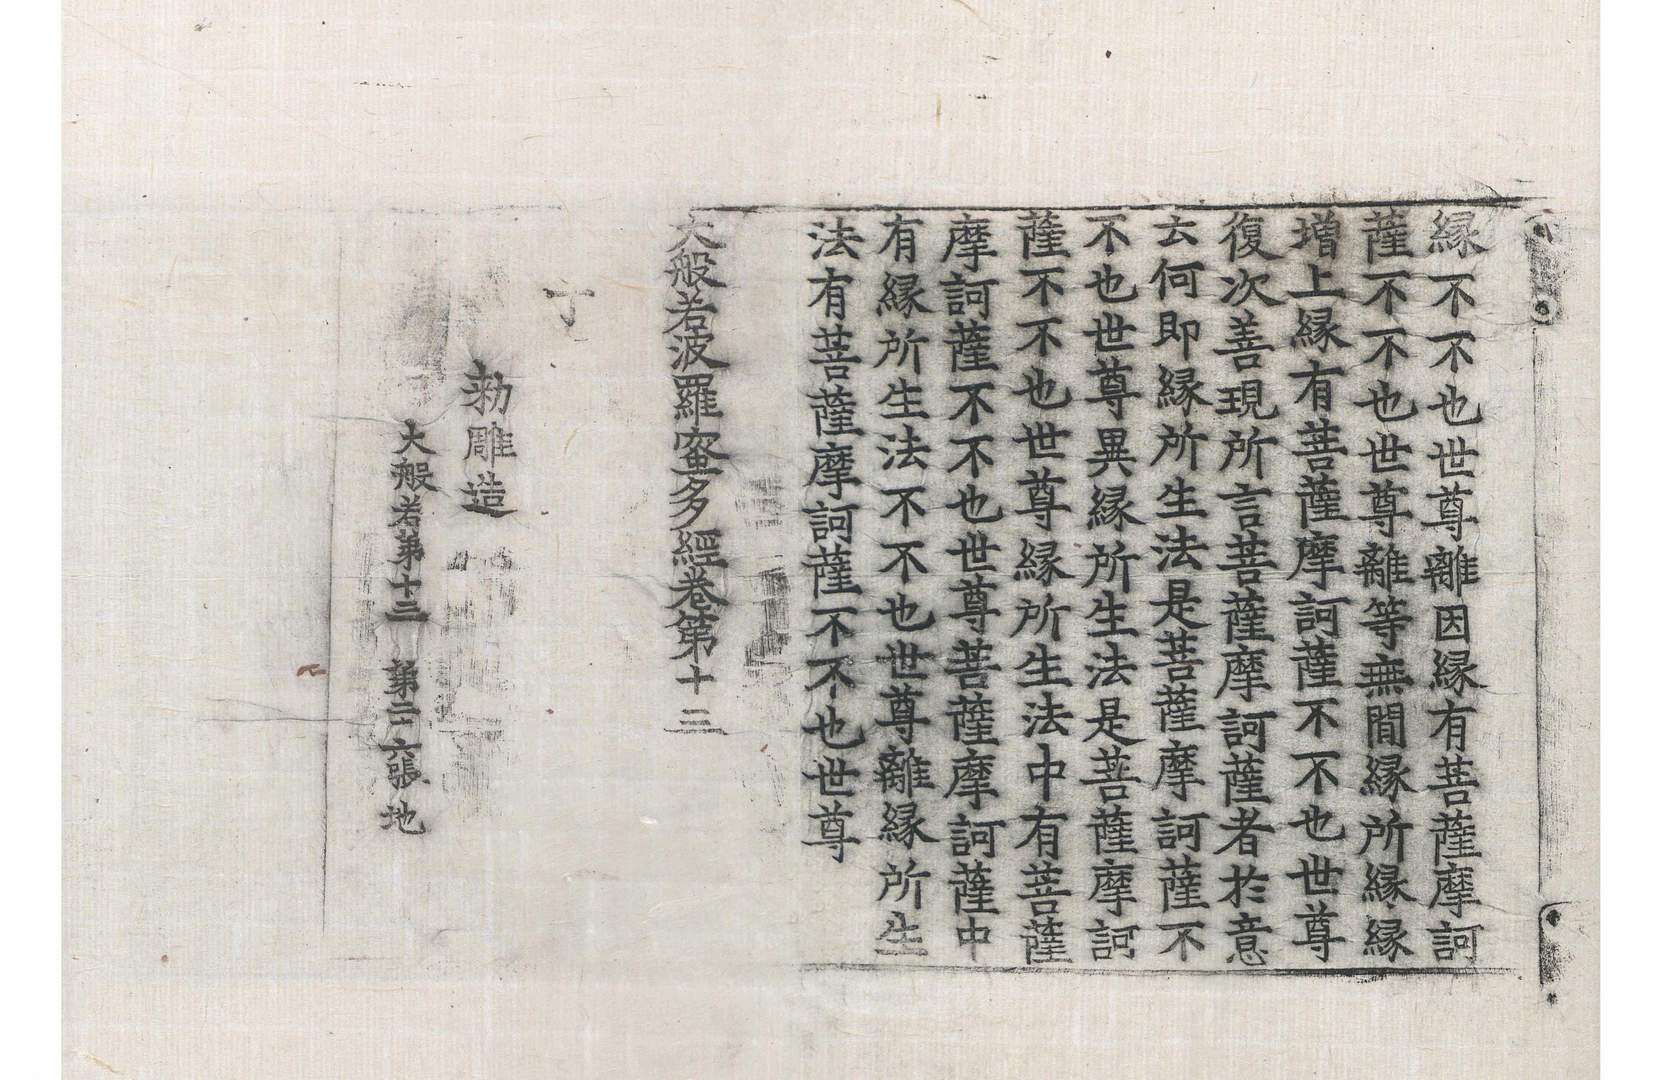 縁不不也世尊離因縁有菩薩摩訶
薩不不也世尊離等無間縁所縁縁
増上縁有菩薩摩訶薩不不也世尊
復次善現所言菩薩摩訶薩者於意
云何即縁所生法是菩薩摩訶薩不
不也世尊異縁所生法是菩薩摩訶
薩不不也世尊縁所生法中有菩薩
摩訶薩不不也世尊菩薩摩訶薩中
有縁所生法不不也世尊離縁所生
法有菩薩摩訶薩不不也世尊
大般若波羅蜜多經卷第十三
勑雕造
大般若第十三 第二六張 地